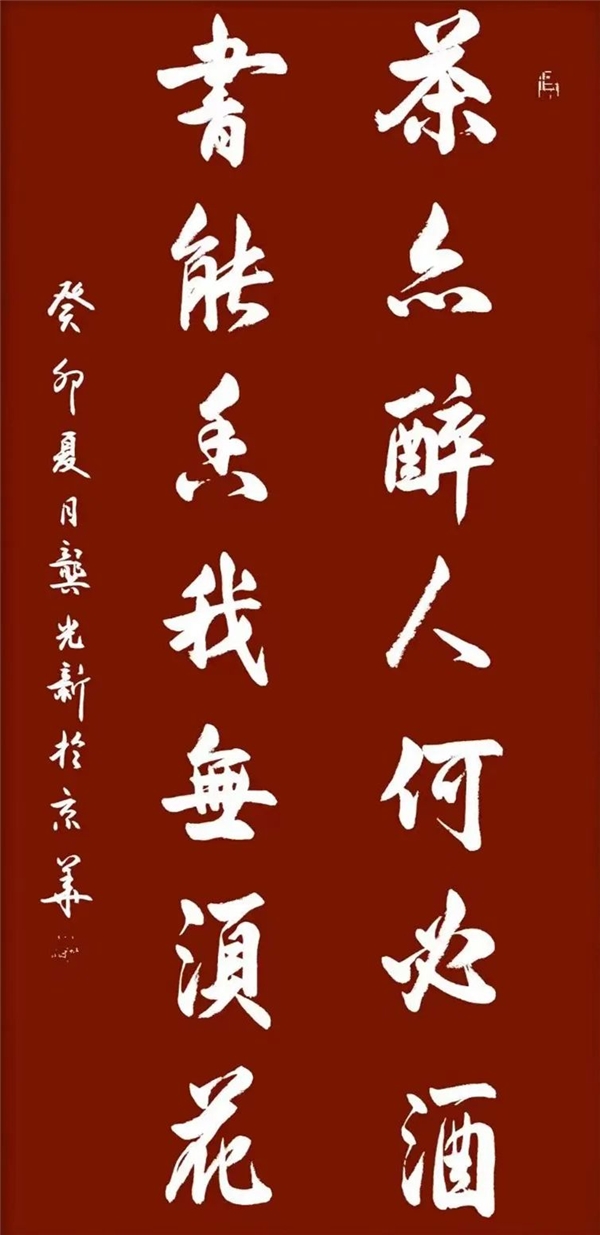 茶亦醉人何必酒
書能香我無須花
癸卯夏月龔光新於京華